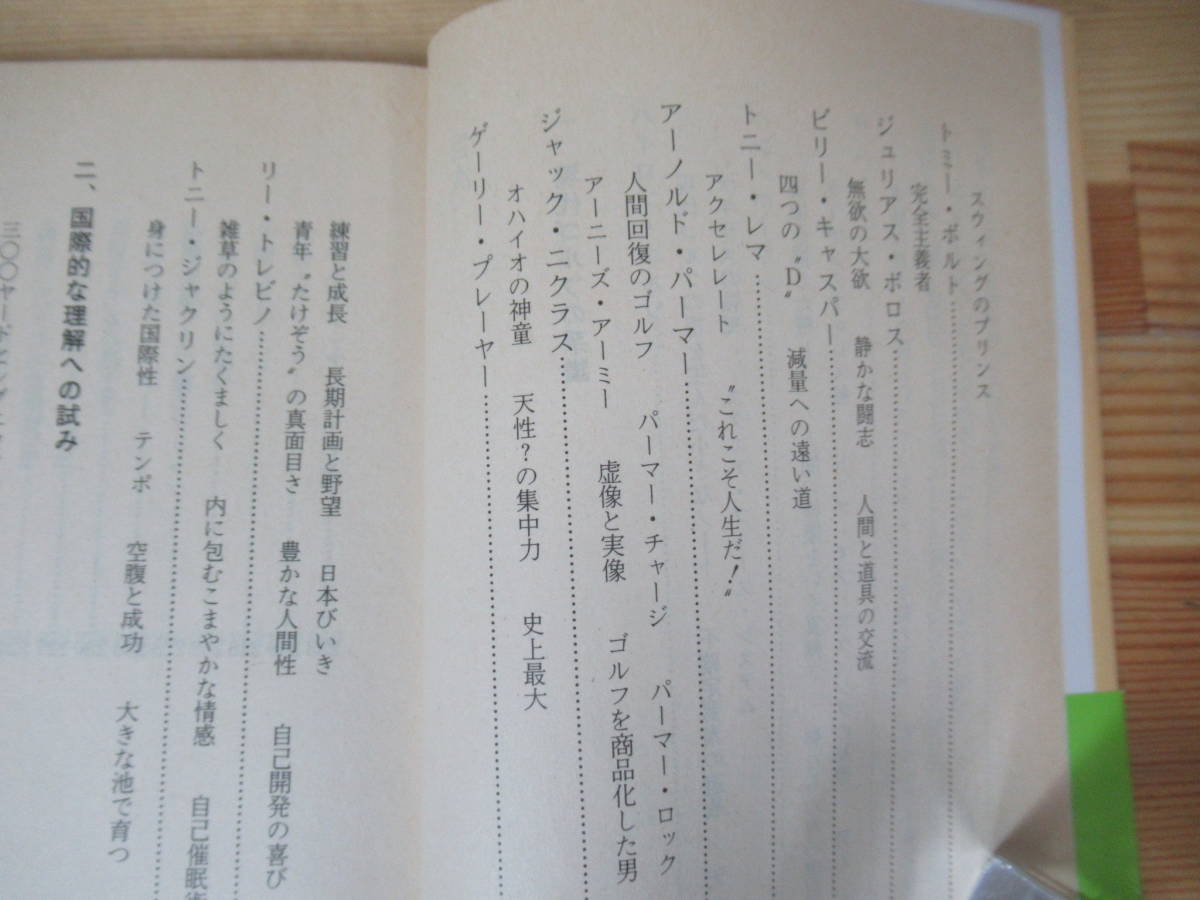 スウィングのプリンス
トミー・ボルト……………………
完全主義者
ジュリアス・ボロス……………………
無欲の大欲　静かな闘志　人間と道具の交流
ビリー・キャスパー……………………
四つの〝D〟　減量への遠い道
トニー・レマ……………………
アクセレレート　〝これこそ人生だ！〟
アーノルド・パーマー……………………
人間回復のゴルフ　パーマー・チャージ　パーマー・ロック
アーニーズ・アーミー　虚像と実像　ゴルフを商品化した男
ジャック・ニクラス……………………
オハイオの神童　天性？の集中力　史上最大
ゲーリー・プレーヤー……………………
練習と成長　長期計画と野望　日本びいき
青年〝たけぞう〟の真面目さ　豊かな人間性　自己開発の喜び
リー・トレビノ……………………
雑草のようにたくましく　内に包むこまやかな情感　自己催眠術
トニー・ジャクリン……………………
身につけた国際性　テンポ　空腹と成功　大きな池で育つ
二、国際的な理解への試み
三〇〇ヤード